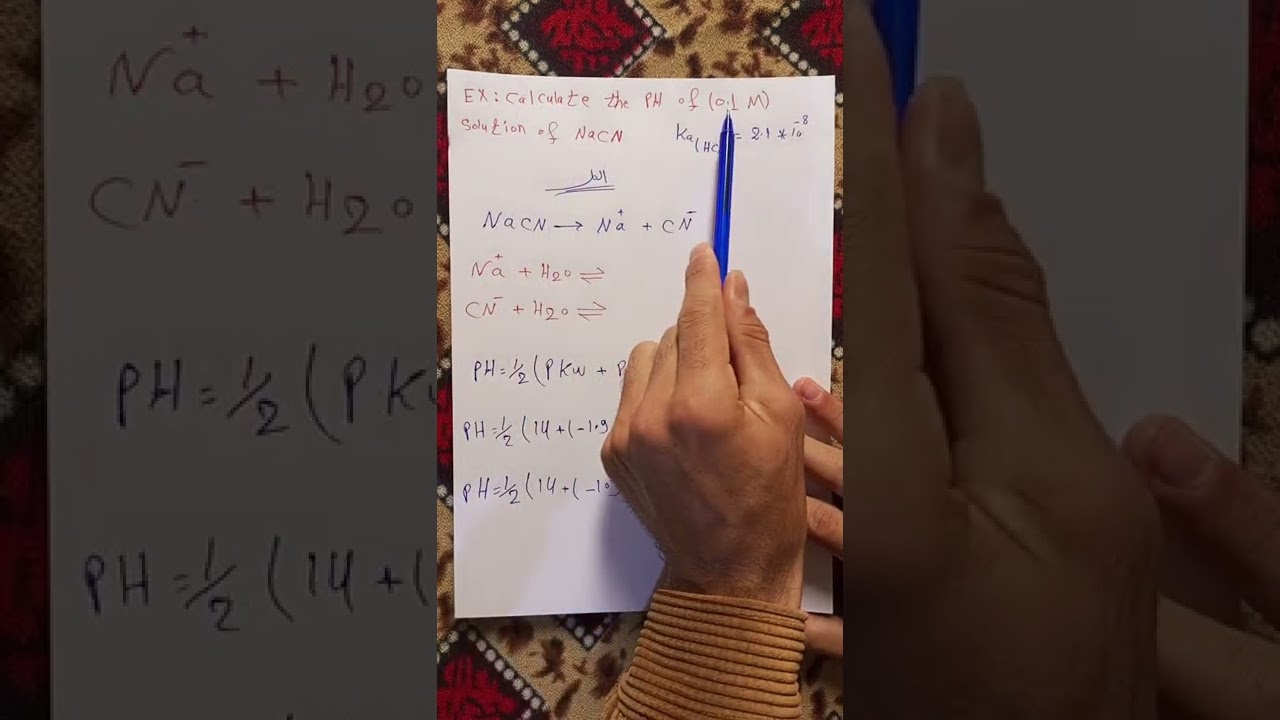 EX: Calculate the PH of (0.1 M)
Solution of NaCN Ka(HC = 2.1 * 10⁻⁸
الحل
NaCN → Na⁺ + CN⁻
Na⁺ + H2O ⇌
CN⁻ + H2O ⇌
PH = 1/2 (PKw + P
PH = 1/2 (14 + (-log
PH = 1/2 (14 + (-log